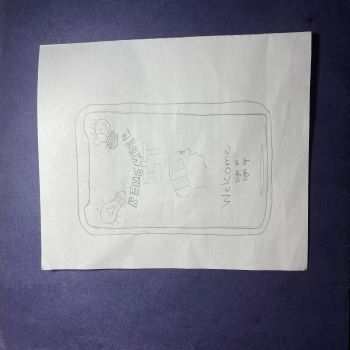 REMEMBER
IT
Welcome
Sign in
Sign up